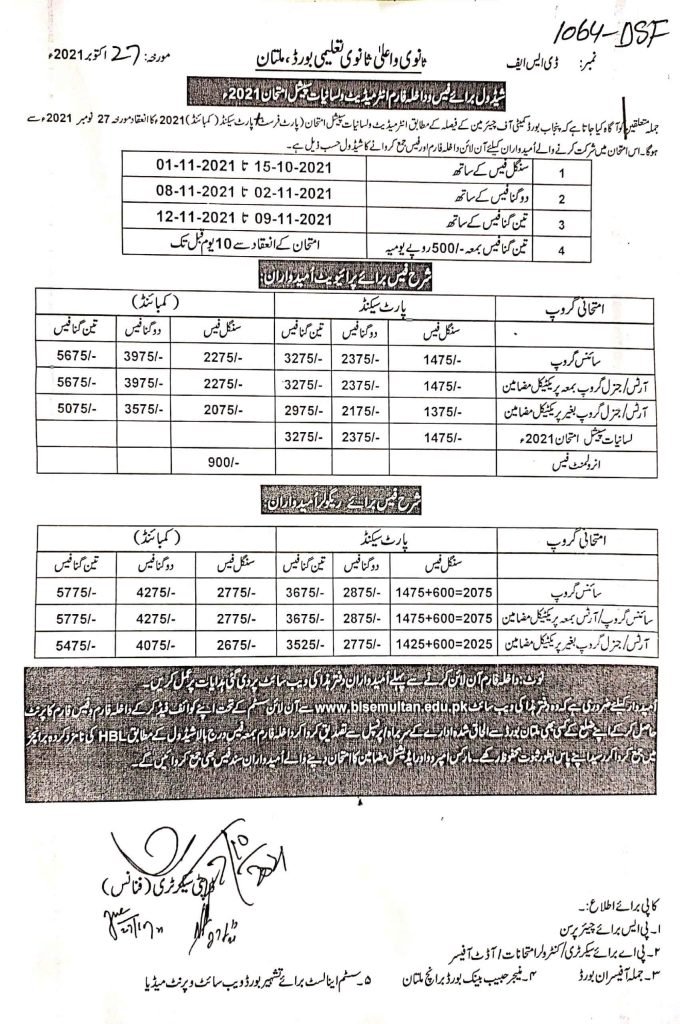 1064-DSF
نمبر: ڈی ایس ایف
ثانوی و اعلیٰ ثانوی تعلیمی بورڈ، ملتان
مورخہ: 27 اکتوبر 2021ء
شیڈول برائے فیس و داخلہ فارم انٹرمیڈیٹ و لسانیات سپیشل امتحان 2021ء
جملہ متعلقین کو آگاہ کیا جاتا ہے کہ پنجاب بورڈ کمیٹی آف چیئرمین کے فیصلہ کے مطابق انٹرمیڈیٹ و لسانیات سپیشل امتحان (پارٹ فرسٹ/پارٹ سیکنڈ (کمبائنڈ) 2021ء کا انعقاد مورخہ 27 نومبر 2021ء سے
ہوگا۔ اس امتحان میں شرکت کرنے والے اُمیدواران کیلئے آن لائن داخلہ فارم اور فیس جمع کروانے کا شیڈول حسب ذیل ہے۔
1 سنگل فیس کے ساتھ 15-10-2021 تا 01-11-2021
2 دو گنا فیس کے ساتھ 02-11-2021 تا 08-11-2021
3 تین گنا فیس کے ساتھ 09-11-2021 تا 12-11-2021
4 تین گنا فیس بمعہ -/500 روپے یومیہ امتحان کے انعقاد سے 10 یوم قبل تک
شرح فیس برائے پرائیویٹ اُمیدواران:
امتحانی گروپ پارٹ سیکنڈ (کمبائنڈ)
سنگل فیس دو گنا فیس تین گنا فیس سنگل فیس دو گنا فیس تین گنا فیس
سائنس گروپ 1475/- 2375/- 3275/- 2275/- 3975/- 5675/-
آرٹس/جنرل گروپ بمعہ پریکٹیکل مضامین 1475/- 2375/- 3275/- 2275/- 3975/- 5675/-
آرٹس/جنرل گروپ بغیر پریکٹیکل مضامین 1375/- 2175/- 2975/- 2075/- 3575/- 5075/-
لسانیات سپیشل امتحان 2021ء 1475/- 2375/- 3275/-
انرولمنٹ فیس 900/-
شرح فیس برائے ریگولر اُمیدواران:
امتحانی گروپ پارٹ سیکنڈ (کمبائنڈ)
سنگل فیس دو گنا فیس تین گنا فیس سنگل فیس دو گنا فیس تین گنا فیس
سائنس گروپ 1475+600=2075 2875/- 3675/- 2775/- 4275/- 5775/-
سائنس گروپ/آرٹس بمعہ پریکٹیکل مضامین 1475+600=2075 2875/- 3675/- 2775/- 4275/- 5775/-
آرٹس/جنرل گروپ بغیر پریکٹیکل مضامین 1425+600=2025 2775/- 3525/- 2675/- 4075/- 5475/-
نوٹ: داخلہ فارم آن لائن کرنے سے پہلے اُمیدواران دفتر ہذا کی ویب سائٹ پر دی گئی ہدایات پر عمل کریں۔
اُمیدوار کیلئے ضروری ہے کہ وہ دفتر ہذا کی ویب سائٹ www.bisemultan.edu.pk سے آن لائن سسٹم کے تحت اپنے کوائف فیڈ کر کے داخلہ فارم و فیس فارم کا پرنٹ
حاصل کر کے اپنے ضلع کے کسی بھی ملتان بورڈ سے الحاق شدہ ادارے کے سربراہ/پرنسپل سے تصدیق کروا کر داخلہ فارم بمعہ فیس درج بالا شیڈول کے مطابق HBL کی نامزد کردہ برانچز
میں جمع کروا کر رسید اپنے پاس بطور ثبوت محفوظ رکھے۔ مارکس امپروو اور ایڈیشنل مضامین کا امتحان دینے والے اُمیدواران سند فیس بھی جمع کروائیں گے۔
ڈپٹی سیکرٹری (فنانس)
کاپی برائے اطلاع:۔
۱۔ پی ایس برائے چیئرپرسن
۲۔ پی اے برائے سیکرٹری/کنٹرولر امتحانات/آڈٹ آفیسر
۳۔ جملہ آفیسران بورڈ ۴۔ منیجر حبیب بینک بورڈ برانچ ملتان ۵۔ سسٹم اینالسٹ برائے تشہیر بورڈ ویب سائٹ و پرنٹ میڈیا